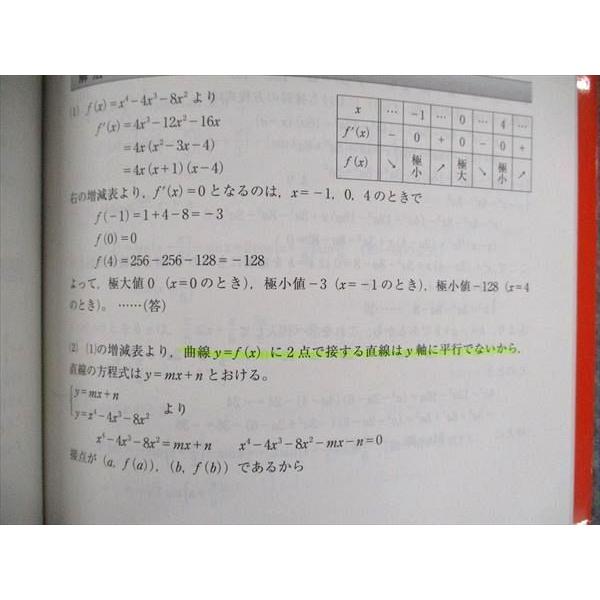 解法
(1) f(x)=x⁴−4x³−8x² より
f′(x)=4x³−12x²−16x
=4x(x²−3x−4)
=4x(x+1)(x−4)
x … −1 … 0 … 4 …
f′(x) − 0 + 0 − 0 +
f(x) ↘ 極小 ↗ 極大 ↘ 極小 ↗
右の増減表より，f′(x)=0 となるのは，x=−1, 0, 4 のときで
f(−1)=1+4−8=−3
f(0)=0
f(4)=256−256−128=−128
よって，極大値 0（x=0 のとき），極小値 −3（x=−1 のとき），極小値 −128（x=4
のとき）。……(答)
(2) (1)の増減表より，曲線 y=f(x) に 2 点で接する直線は y 軸に平行でないから，
直線の方程式は y=mx+n とおける。
{y=mx+n
y=x⁴−4x³−8x² より
x⁴−4x³−8x²=mx+n x⁴−4x³−8x²−mx−n=0
接点が (a, f(a)), (b, f(b)) であるから